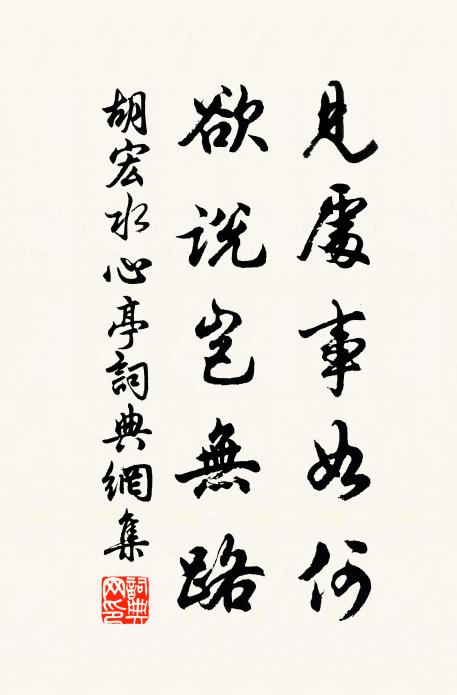 見處事如何
欲説豈無路
胡宏水心亭詞典網集
詞典網印